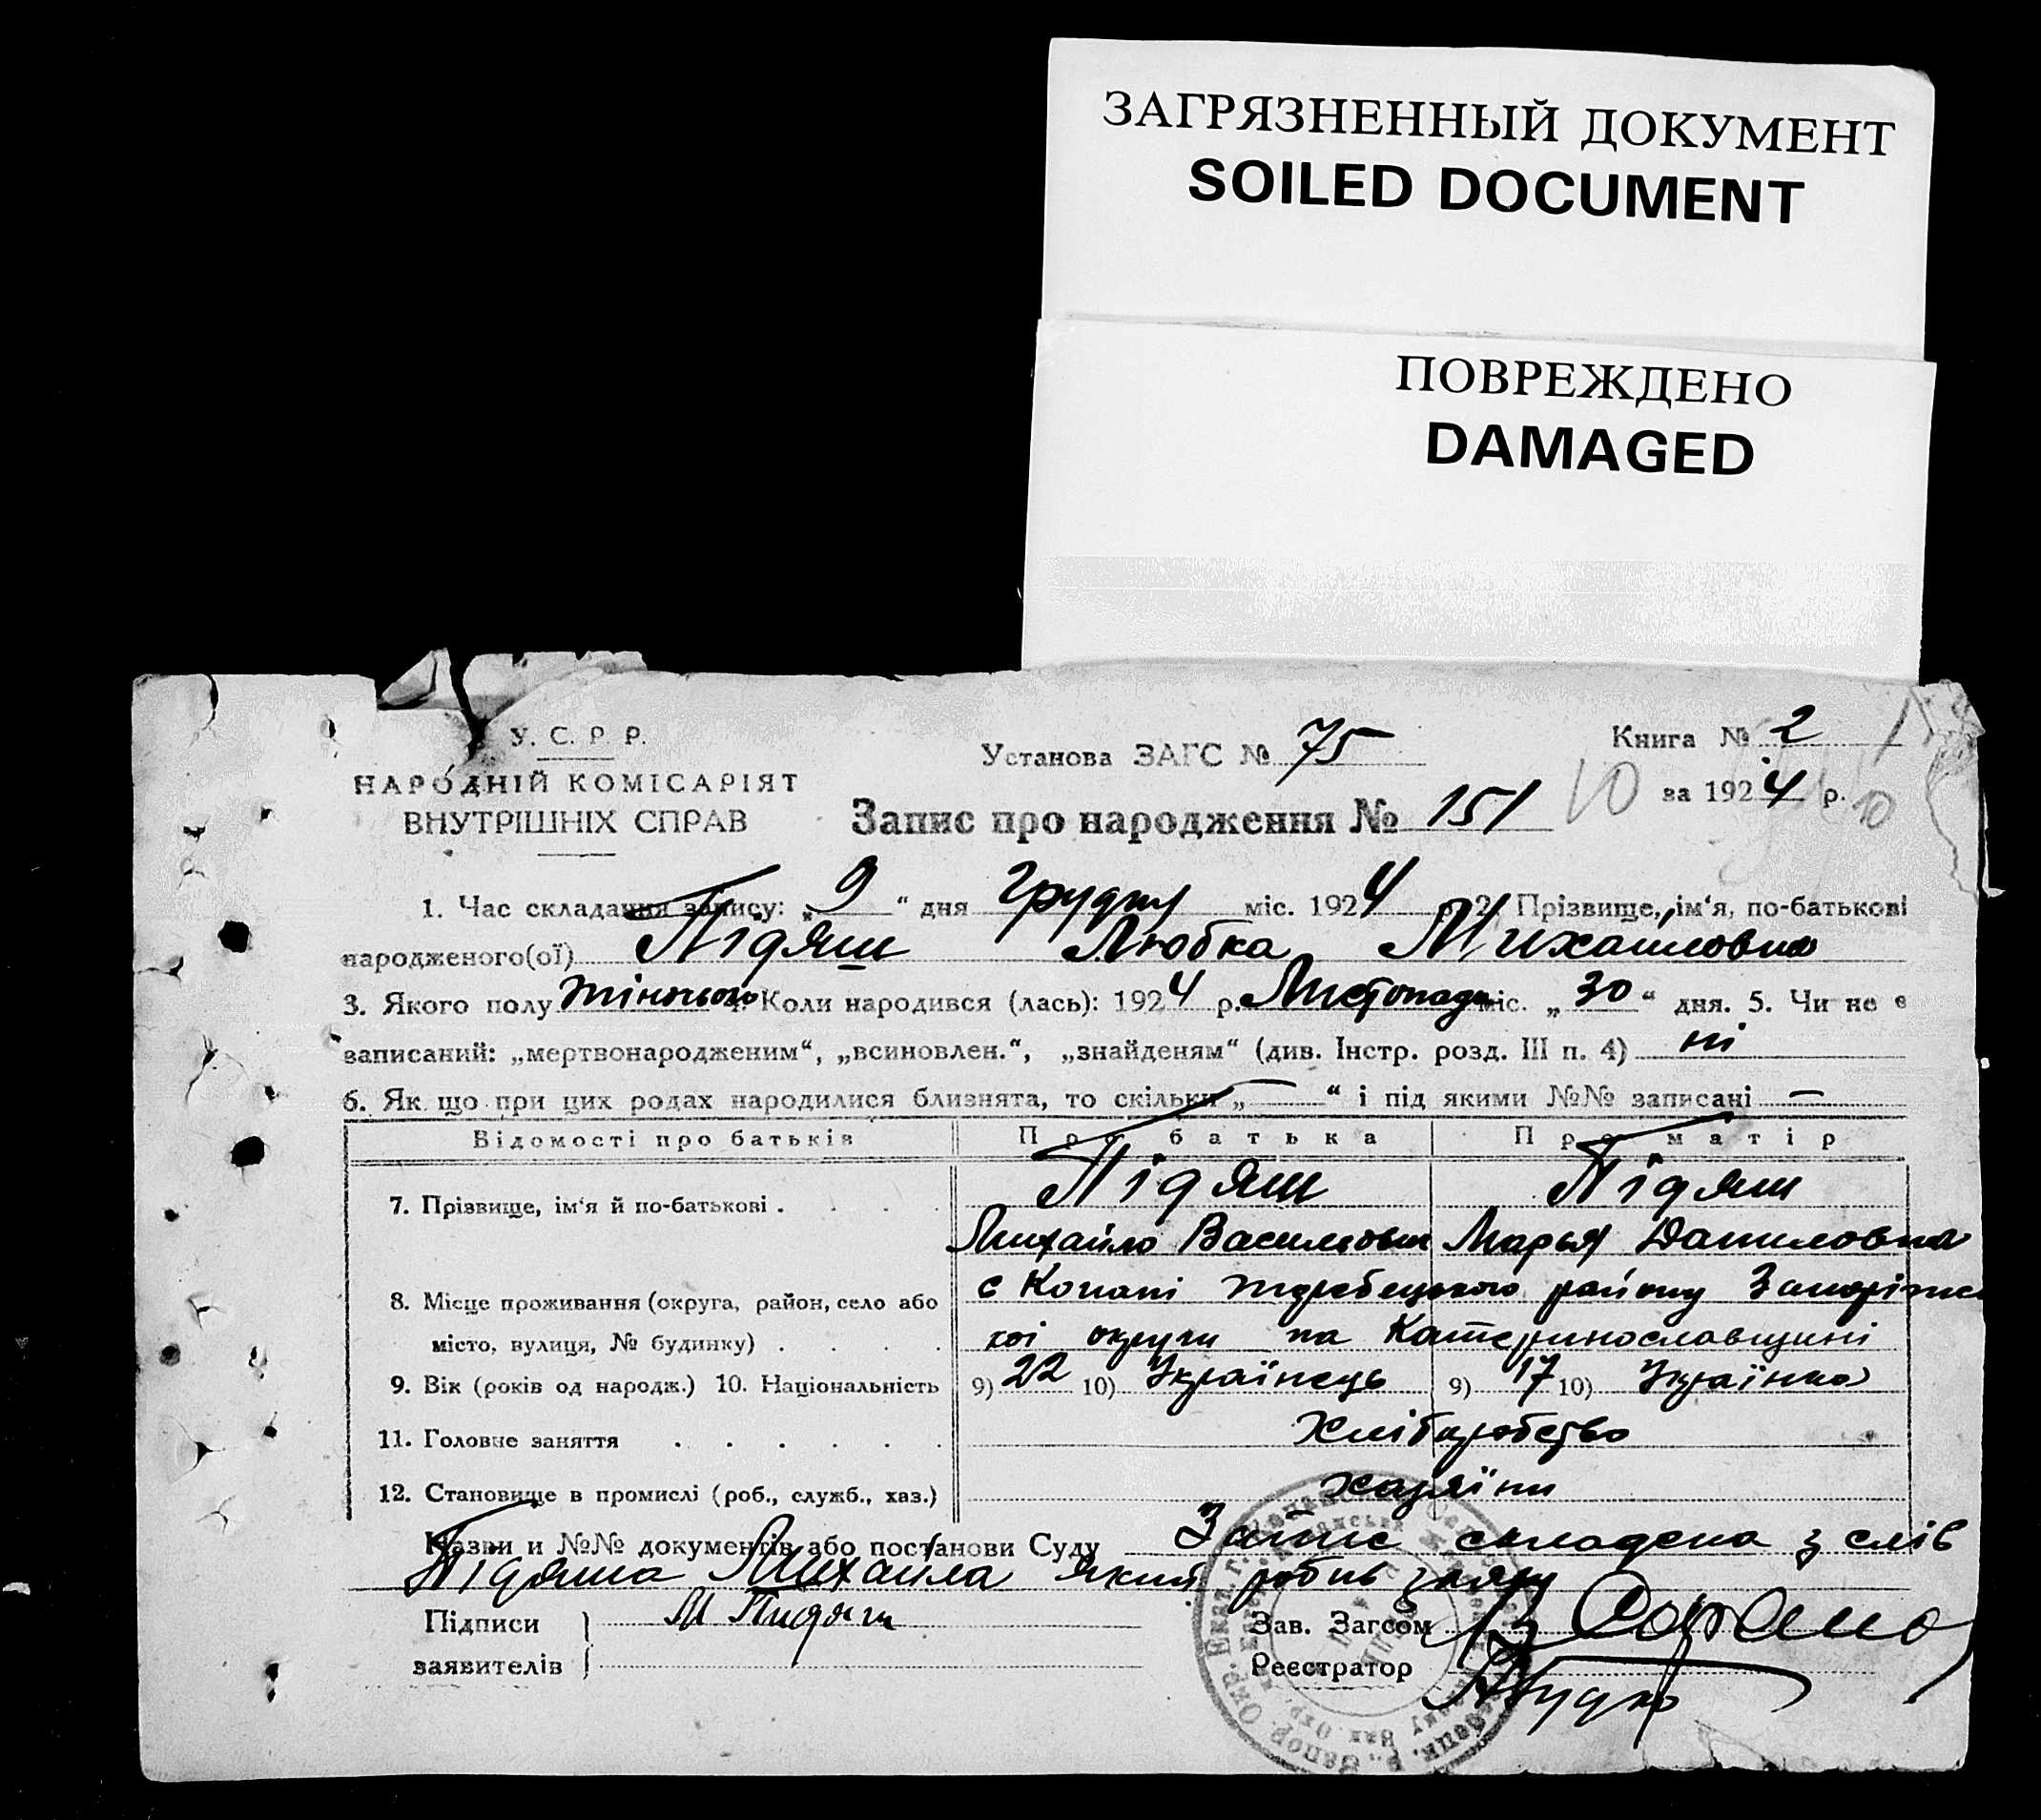 ЗАГРЯЗНЕННЫЙ ДОКУМЕНТ
SOILED DOCUMENT
ПОВРЕЖДЕНО
DAMAGED
У. С. Р. Р.
НАРОДНІЙ КОМІСАРІЯТ
ВНУТРІШНІХ СПРАВ
Установа ЗАГС № 75
Книга № 2
за 1924 р.
10
10
Запис про народження № 151
1. Час складання запису: „ 9 “ дня грудня міс. 1924 р. 2. Прізвище, ім'я, по-батькові
народженого(ої) Підяш Любка Михайловна
3. Якого полу жіночого 4. Коли народився (лась): 1924 р. Листопада міс. „ 30 “ дня. 5. Чи не є
записаний: „мертвонародженим“, „всиновлен.“, „знайденям“ (див. Інстр. розд. III п. 4) ні
6. Як що при цих родах народилися близнята, то скільки „ — “ і під якими №№ записані —
Відомості про батьків Про батька Про матір
7. Прізвище, ім'я й по-батькові . Підяш Підяш
Михайло Васильович Марья Даниловна
8. Місце проживання (округа, район, село або с Копані Жеребецького району Запоріжсь
місто, вулиця, № будинку) . кої округи на Катеринославщині
9. Вік (років од народж.) 10. Національність 9) 22 10) Українець 9) 17 10) Українка
11. Головне заняття Хліборобство
12. Становище в промислі (роб., служб., хаз.) хазяїни
Назви и №№ документів або постанови Суду Запис складена з слів
Підяша Михайла який робив заяву
Підписи М Пидяш
заявителів
Зав. Загсом
Реєстратор